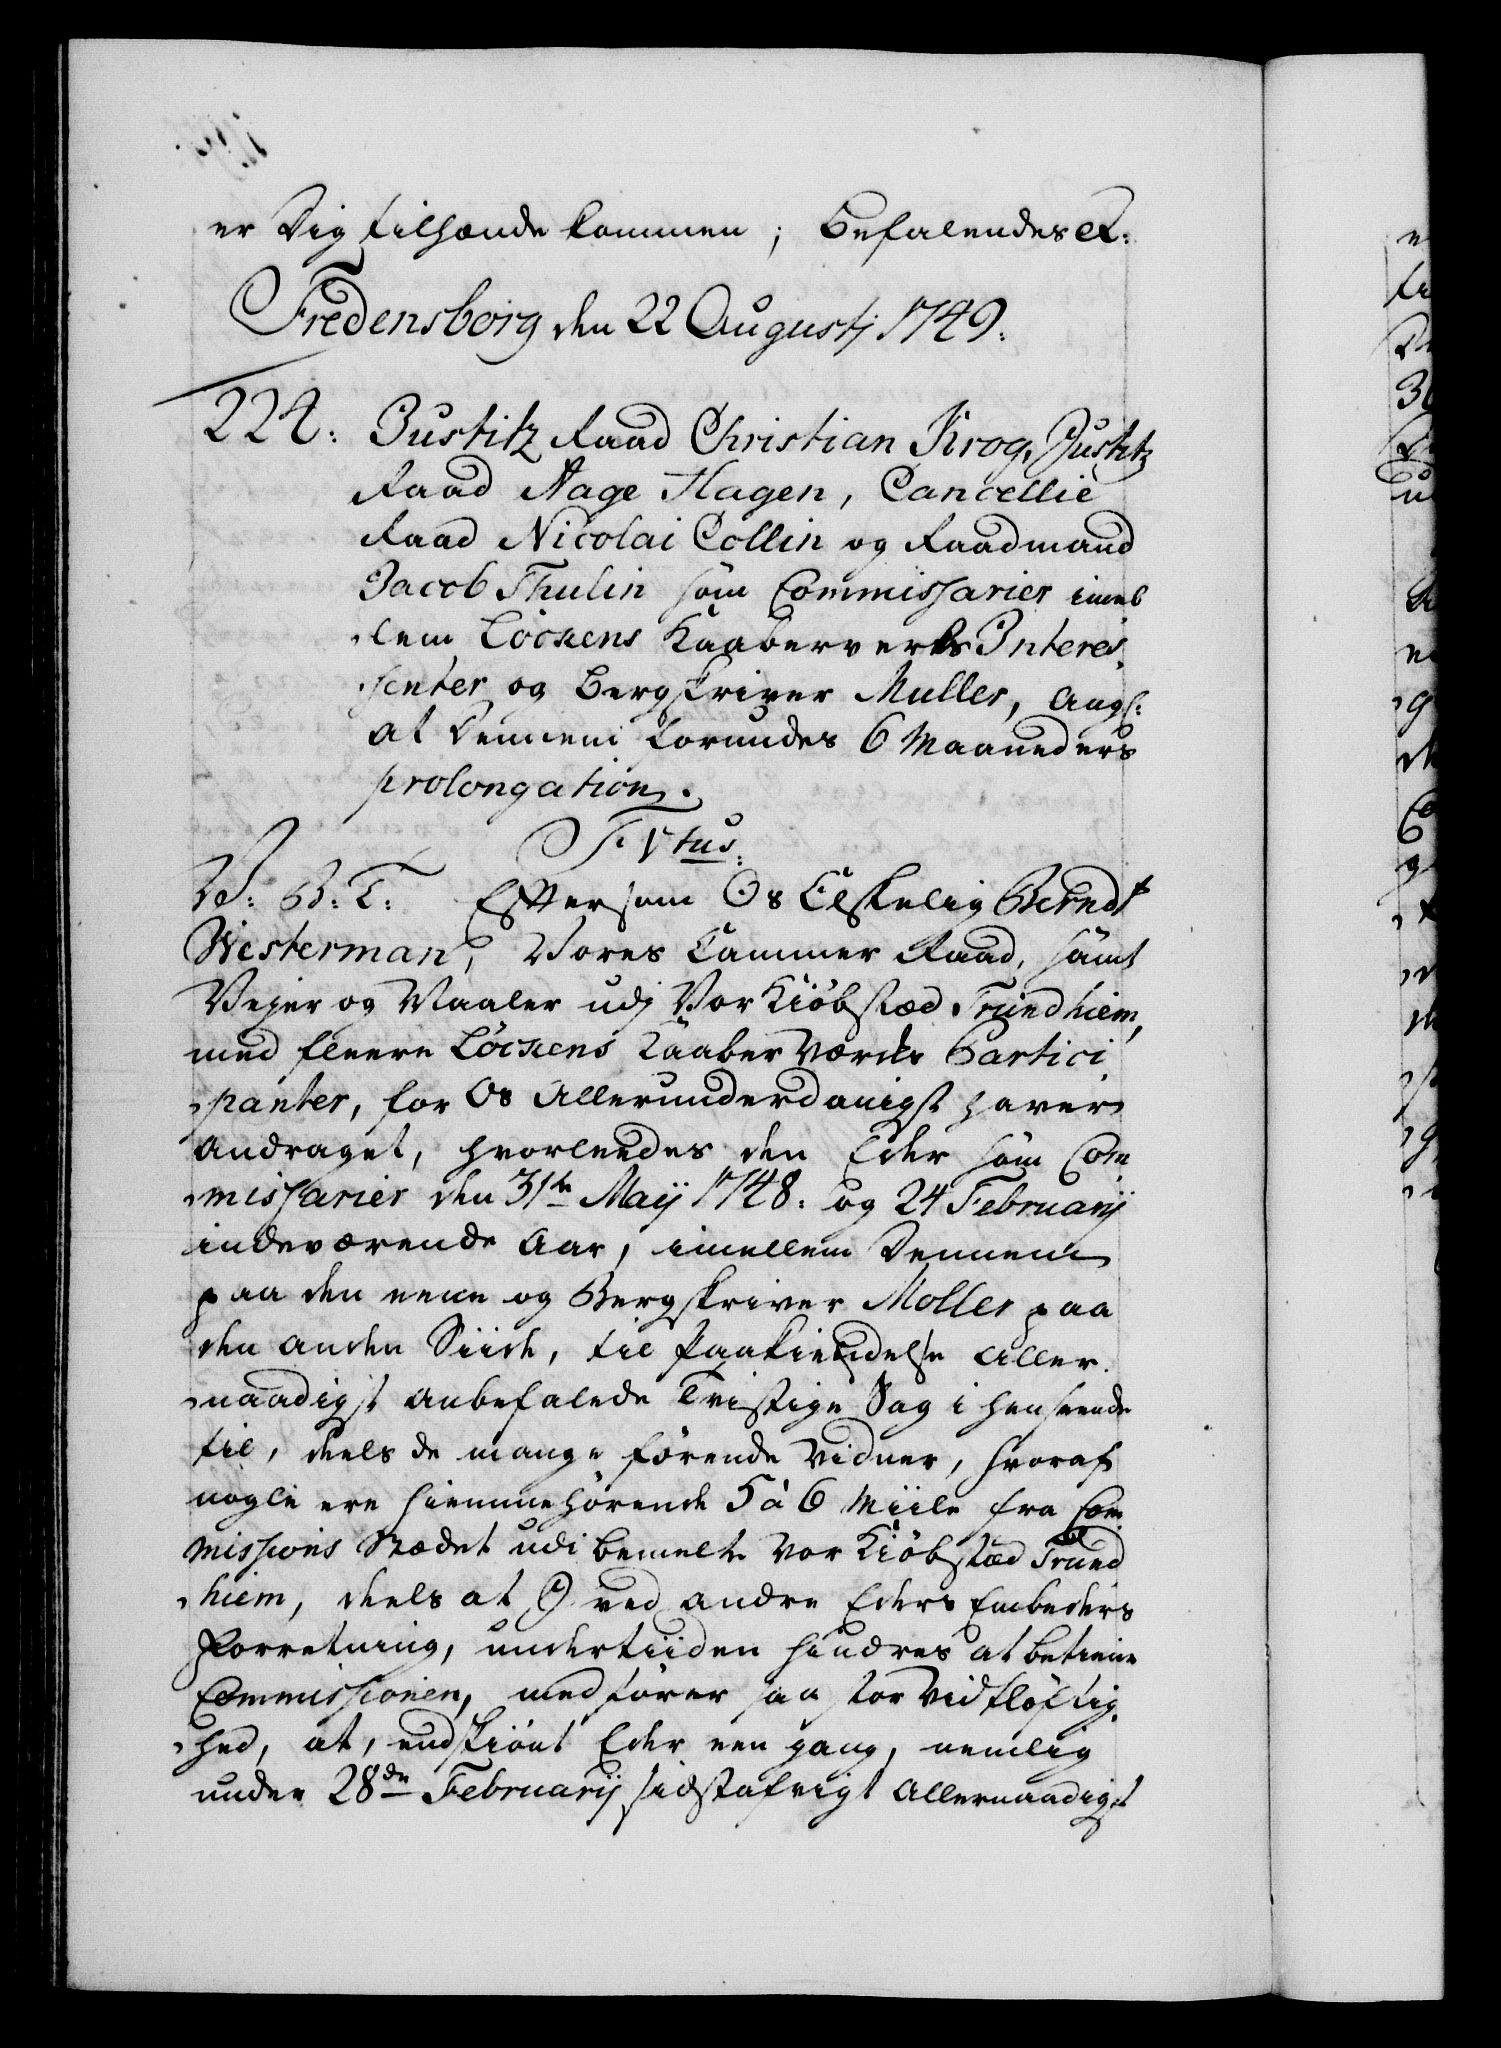 er Dig tilhænde kommen; Befalendes etc:
Fredensborg den 22 Augustj 1749.
224: Justitz Raad Christian Krog, Justitz
Raad Aage Hagen, Cancellie
Raad Nicolai Collin og Raadmand
Jacob Thulin som Commissarier imel
lem Löckens Kaaberverks Interes
senter og Bergskriver Muller, angl:
at Dennem forundes 6 Maaneders
prolongation.
F. Vtus.
V: G: T: Eftersom Os Elskelig Berndt
Westerman, Vores Cammer Raad, samt
Vejer og Maaler udj Vor Kiöbstæd Trundhiem,
med fleere Löckens Kaaber Værcks Partici
panter, for Os Allerunderdanigst haver
andraget, hvorleedes den Eder som Com
missarier den 31te Maij 1748. og 24 Februarij
indeværende Aar, imellem Dennem
paa den eene og Bergskriver Moller paa
den anden Siide, til Paakiendelse Aller
naadigst anbefalede Tvistige Sag i henseende
til, deels de mange förende Vidner, hvoraf
nogle ere hiemmehörende 5 à 6 Miile fra Com
missions Stædet udi bemelte Vor Kiöbstæd Trund
hiem, deels at I ved andre Eders Embeders
Forretning, undertiiden hindres at betiene
Commissionen, medförer saa stor Vidtlöftig
hed, at, endskiönt Eder een gang, nemlig
under 28de Februarij sidstafvigt Allernaadigst